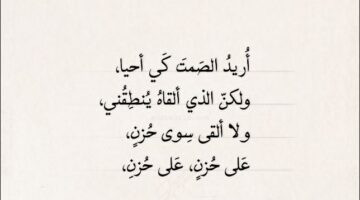 أُريدُ الصَمتَ كَي أحيا،
ولكنّ الذي ألقاهُ يُنطِقُني،
ولا ألقى سِوى حُزنٍ،
عَلى حُزنٍ، عَلى حُزنِ،